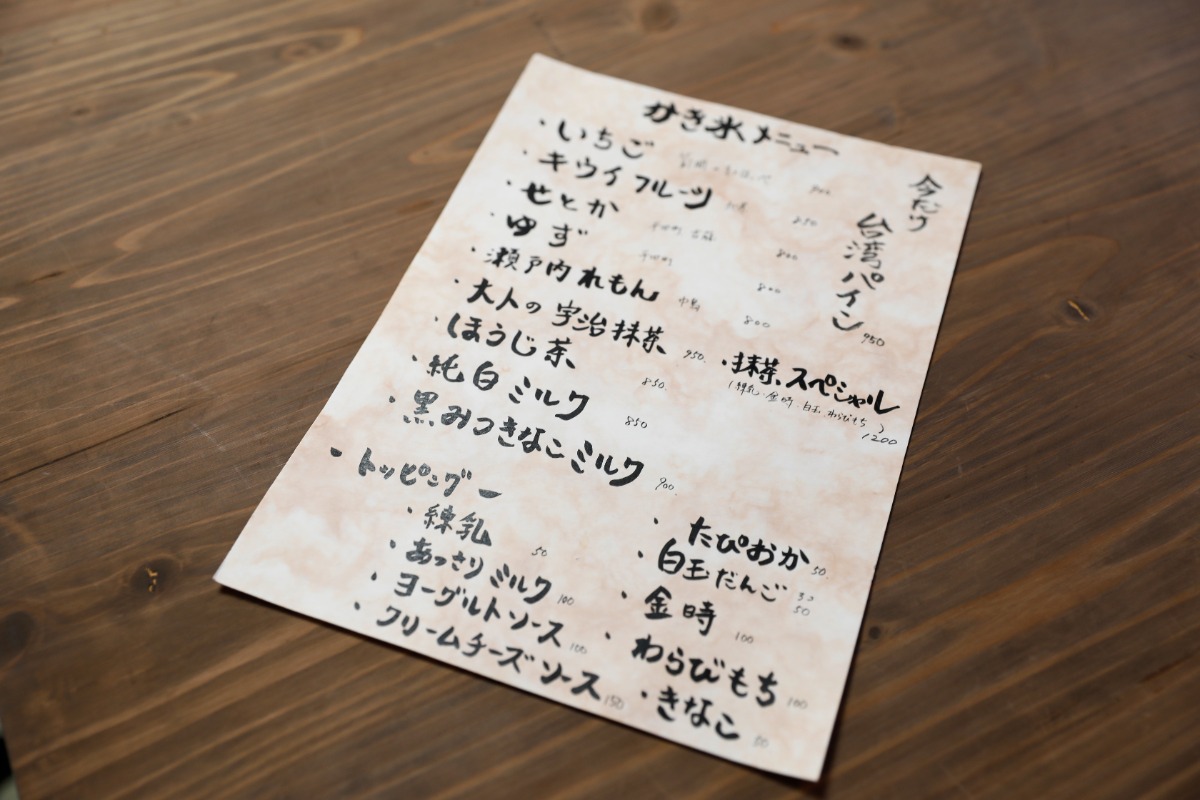 かき氷メニュー
・いちご 900
・キウイフルーツ 850
・せとか 800
・ゆず 800
・瀬戸内れもん 800
・大人の宇治抹茶 950.
・ほうじ茶 850.
・純白ミルク 850
・黒みつきなこミルク 900.
今だけ
台湾パイン 950
・抹茶スペシャル
(練乳・金時・白玉・わらびもち)
1200
ートッピングー
・練乳 50
・あっさりミルク 100
・ヨーグルトソース 100
・クリームチーズソース 150
・たぴおか 50.
・白玉だんご 50
・金時 100
・わらびもち 100
・きなこ 50